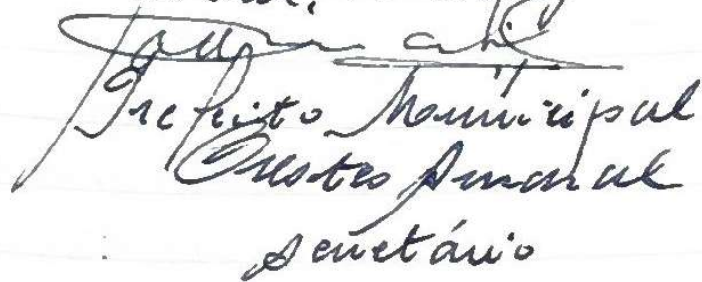 Prefeito Municipal
Orestes Amaral
secretário